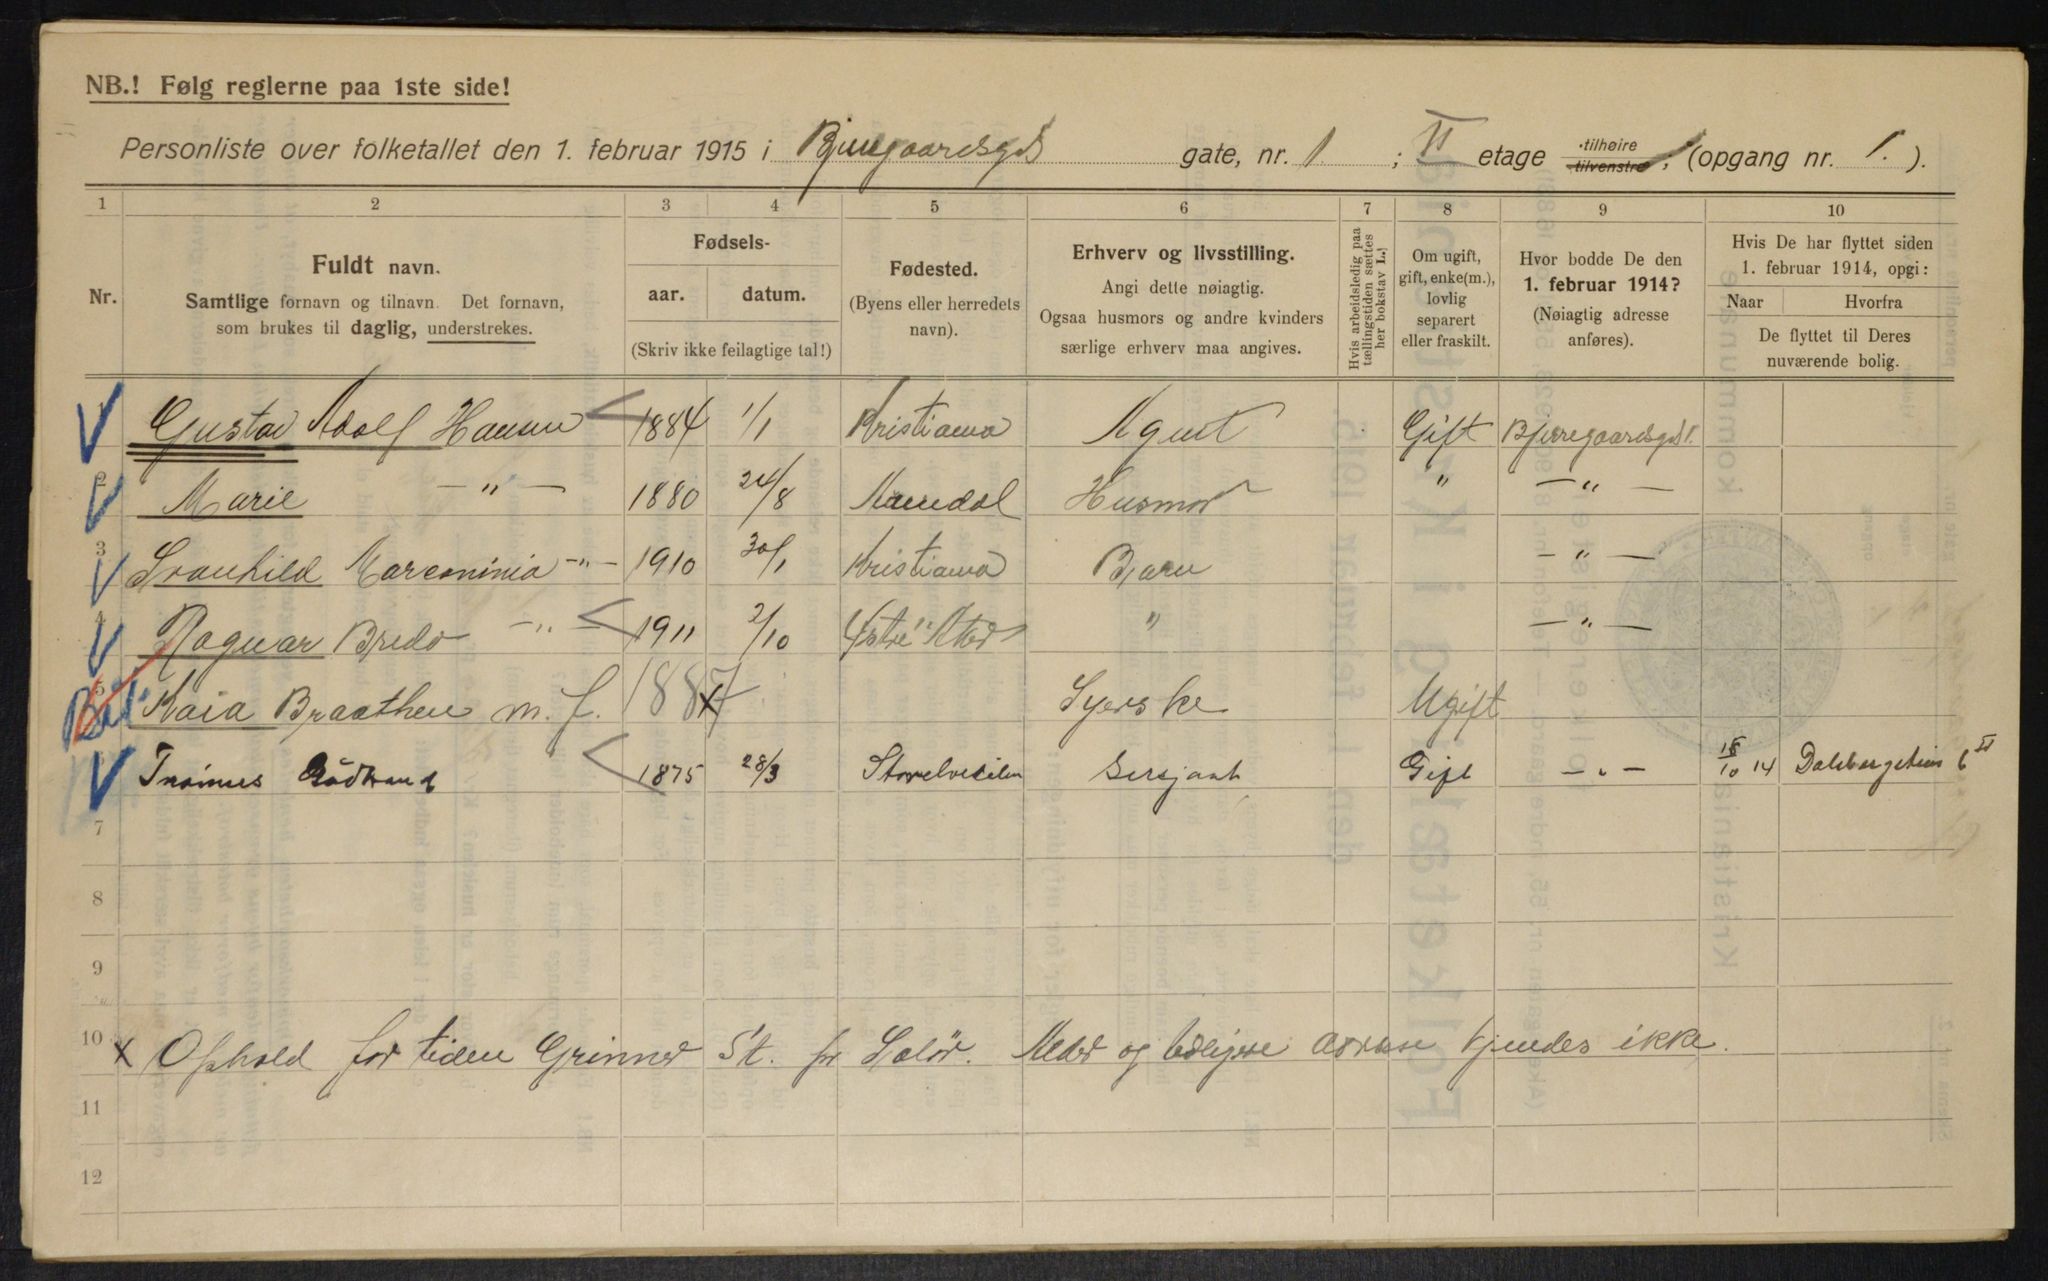 NB.! Følg reglerne paa 1ste side!
Personliste over folketallet den 1. februar 1915 i Bjerregaardsgd gate, nr. 1 ; II etage tilhøire tilvenstre ; (opgang nr. 1. ).
1 2 3 4 5 6 7 8 9 10
Nr.
Fuldt navn.
Samtlige fornavn og tilnavn. Det fornavn,
som brukes til daglig, understrekes.
Fødsels-
aar. datum.
(Skriv ikke feilagtige tal!)
Fødested.
(Byens eller herredets
navn).
Erhverv og livsstilling.
Angi dette nøiagtig.
Ogsaa husmors og andre kvinders
særlige erhverv maa angives.
Hvis arbeidsledig paa
tællingstiden sættes
her bokstav L.
Om ugift,
gift, enke(m.),
lovlig
separert
eller fraskilt.
Hvor bodde De den
1. februar 1914?
(Nøiagtig adresse
anføres).
Hvis De har flyttet siden
1. februar 1914, opgi:
Naar Hvorfra
De flyttet til Deres
nuværende bolig.
1 Gustav Adolf Hansen 1884 1/1 Kristiania Agent Gift Bjerregaardsgd 1.
2 Marie —"— 1880 24/8 Husmor " —"—
3 Svanhild Marconinia —"— 1910 30/1 Kristiania Barn —"—
4 Ragnar Bredo —"— 1911 2/10 " —"—
5 Kaia Braathen m. f. 1887 x Syerske Ugift
Rödsrand 1875 28/3 Storelvedalen Sersjant Gift —"— 15/10 14 6 II
7
8
9
10 x Ophold for tiden Grinner St. pr Solör. Alder og tidligere adresse kjendes ikke.
11
12